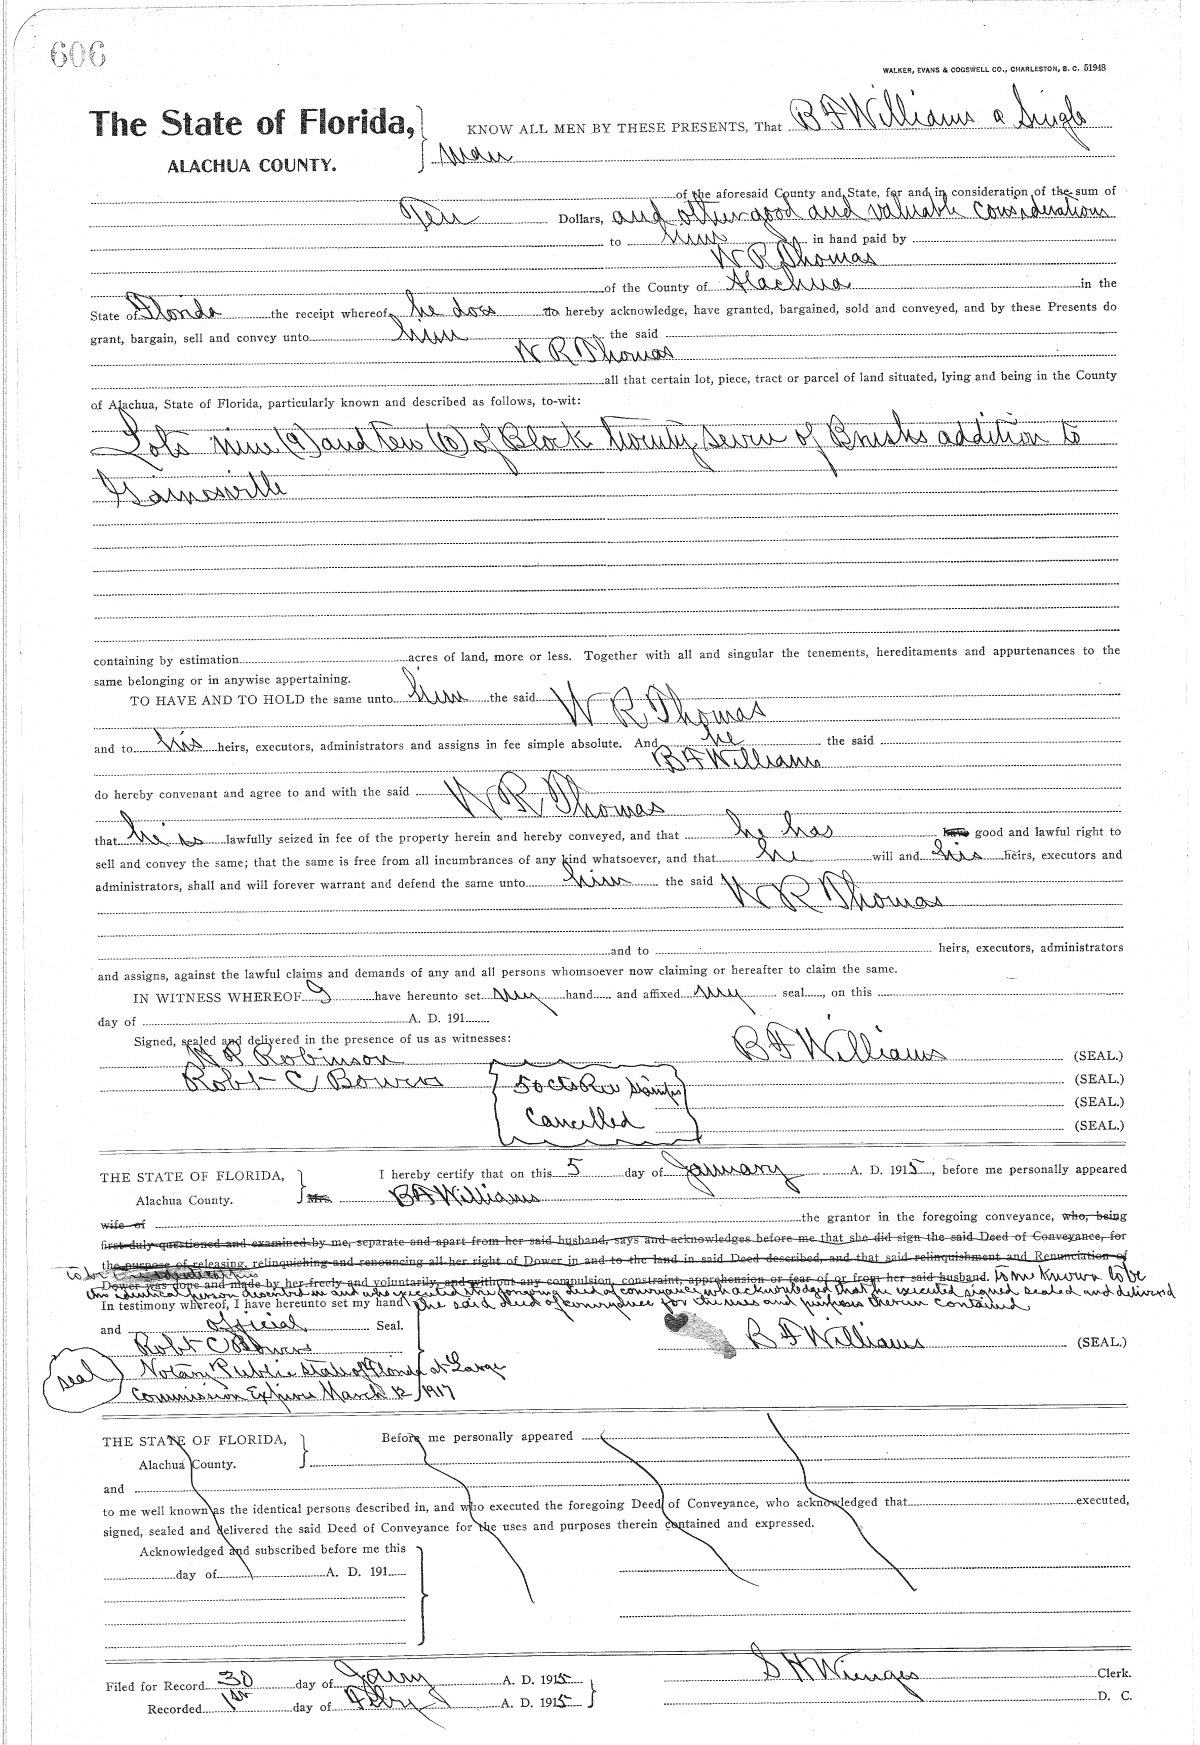 606
WALKER, EVANS & COGSWELL CO., CHARLESTON, S. C. 51948
The State of Florida,
ALACHUA COUNTY.
KNOW ALL MEN BY THESE PRESENTS, That B F Williams a Single
man
of the aforesaid County and State, for and in consideration of the sum of
Ten Dollars, and other good and valuable considerations
to him in hand paid by
W R Thomas
of the County of Alachua in the
State of Florida the receipt whereof he does do hereby acknowledge, have granted, bargained, sold and conveyed, and by these Presents do
grant, bargain, sell and convey unto him the said
W R Thomas
all that certain lot, piece, tract or parcel of land situated, lying and being in the County
of Alachua, State of Florida, particularly known and described as follows, to-wit:
Lots nine (9) and Ten (10) of Block twenty seven of Brushs addition to
Gainesville
containing by estimation acres of land, more or less. Together with all and singular the tenements, hereditaments and appurtenances to the
same belonging or in anywise appertaining.
TO HAVE AND TO HOLD the same unto him the said W R Thomas
and to his heirs, executors, administrators and assigns in fee simple absolute. And he the said
B F Williams
do hereby convenant and agree to and with the said W R Thomas
that he is lawfully seized in fee of the property herein and hereby conveyed, and that he has have good and lawful right to
sell and convey the same; that the same is free from all incumbrances of any kind whatsoever, and that he will and his heirs, executors and
administrators, shall and will forever warrant and defend the same unto him the said W R Thomas
and to heirs, executors, administrators
and assigns, against the lawful claims and demands of any and all persons whomsoever now claiming or hereafter to claim the same.
IN WITNESS WHEREOF I have hereunto set my hand and affixed my seal, on this
day of A. D. 191
Signed, sealed and delivered in the presence of us as witnesses:
W R Robinson B F Williams (SEAL.)
Robt C Bowers (SEAL.)
50 cts Rev Stamps
(SEAL.)
Cancelled (SEAL.)
THE STATE OF FLORIDA, I hereby certify that on this 5 day of January A. D. 1915, before me personally appeared
Alachua County. Mrs. B F Williams
wife of the grantor in the foregoing conveyance, who, being
first duly questioned and examined by me, separate and apart from her said husband, says and acknowledges before me that she did sign the said Deed of Conveyance, for
the purpose of releasing, relinquishing and renouncing all her right of Dower in and to the land in said Deed described, and that said relinquishment and Renunciation of
Dower was done and made by her freely and voluntarily, and without any compulsion, constraint, apprehension or fear of or from her said husband. to me known to be
the identical person described in and who executed the foregoing deed of conveyance who acknowledged that he executed signed sealed and delivered
In testimony whereof, I have hereunto set my hand the said deed of conveyance for the uses and purposes therein contained
and official Seal.
Robt C Bowers B F Williams (SEAL.)
seal Notary Public State of Florida at Large
Commission Expires March 12 1917
THE STATE OF FLORIDA, Before me personally appeared
Alachua County.
and
to me well known as the identical persons described in, and who executed the foregoing Deed of Conveyance, who acknowledged that executed,
signed, sealed and delivered the said Deed of Conveyance for the uses and purposes therein contained and expressed.
Acknowledged and subscribed before me this
day of A. D. 191
Filed for Record 30 day of Jany A. D. 1915 S H Wienges Clerk.
Recorded 1st day of Feby A. D. 1915 D. C.